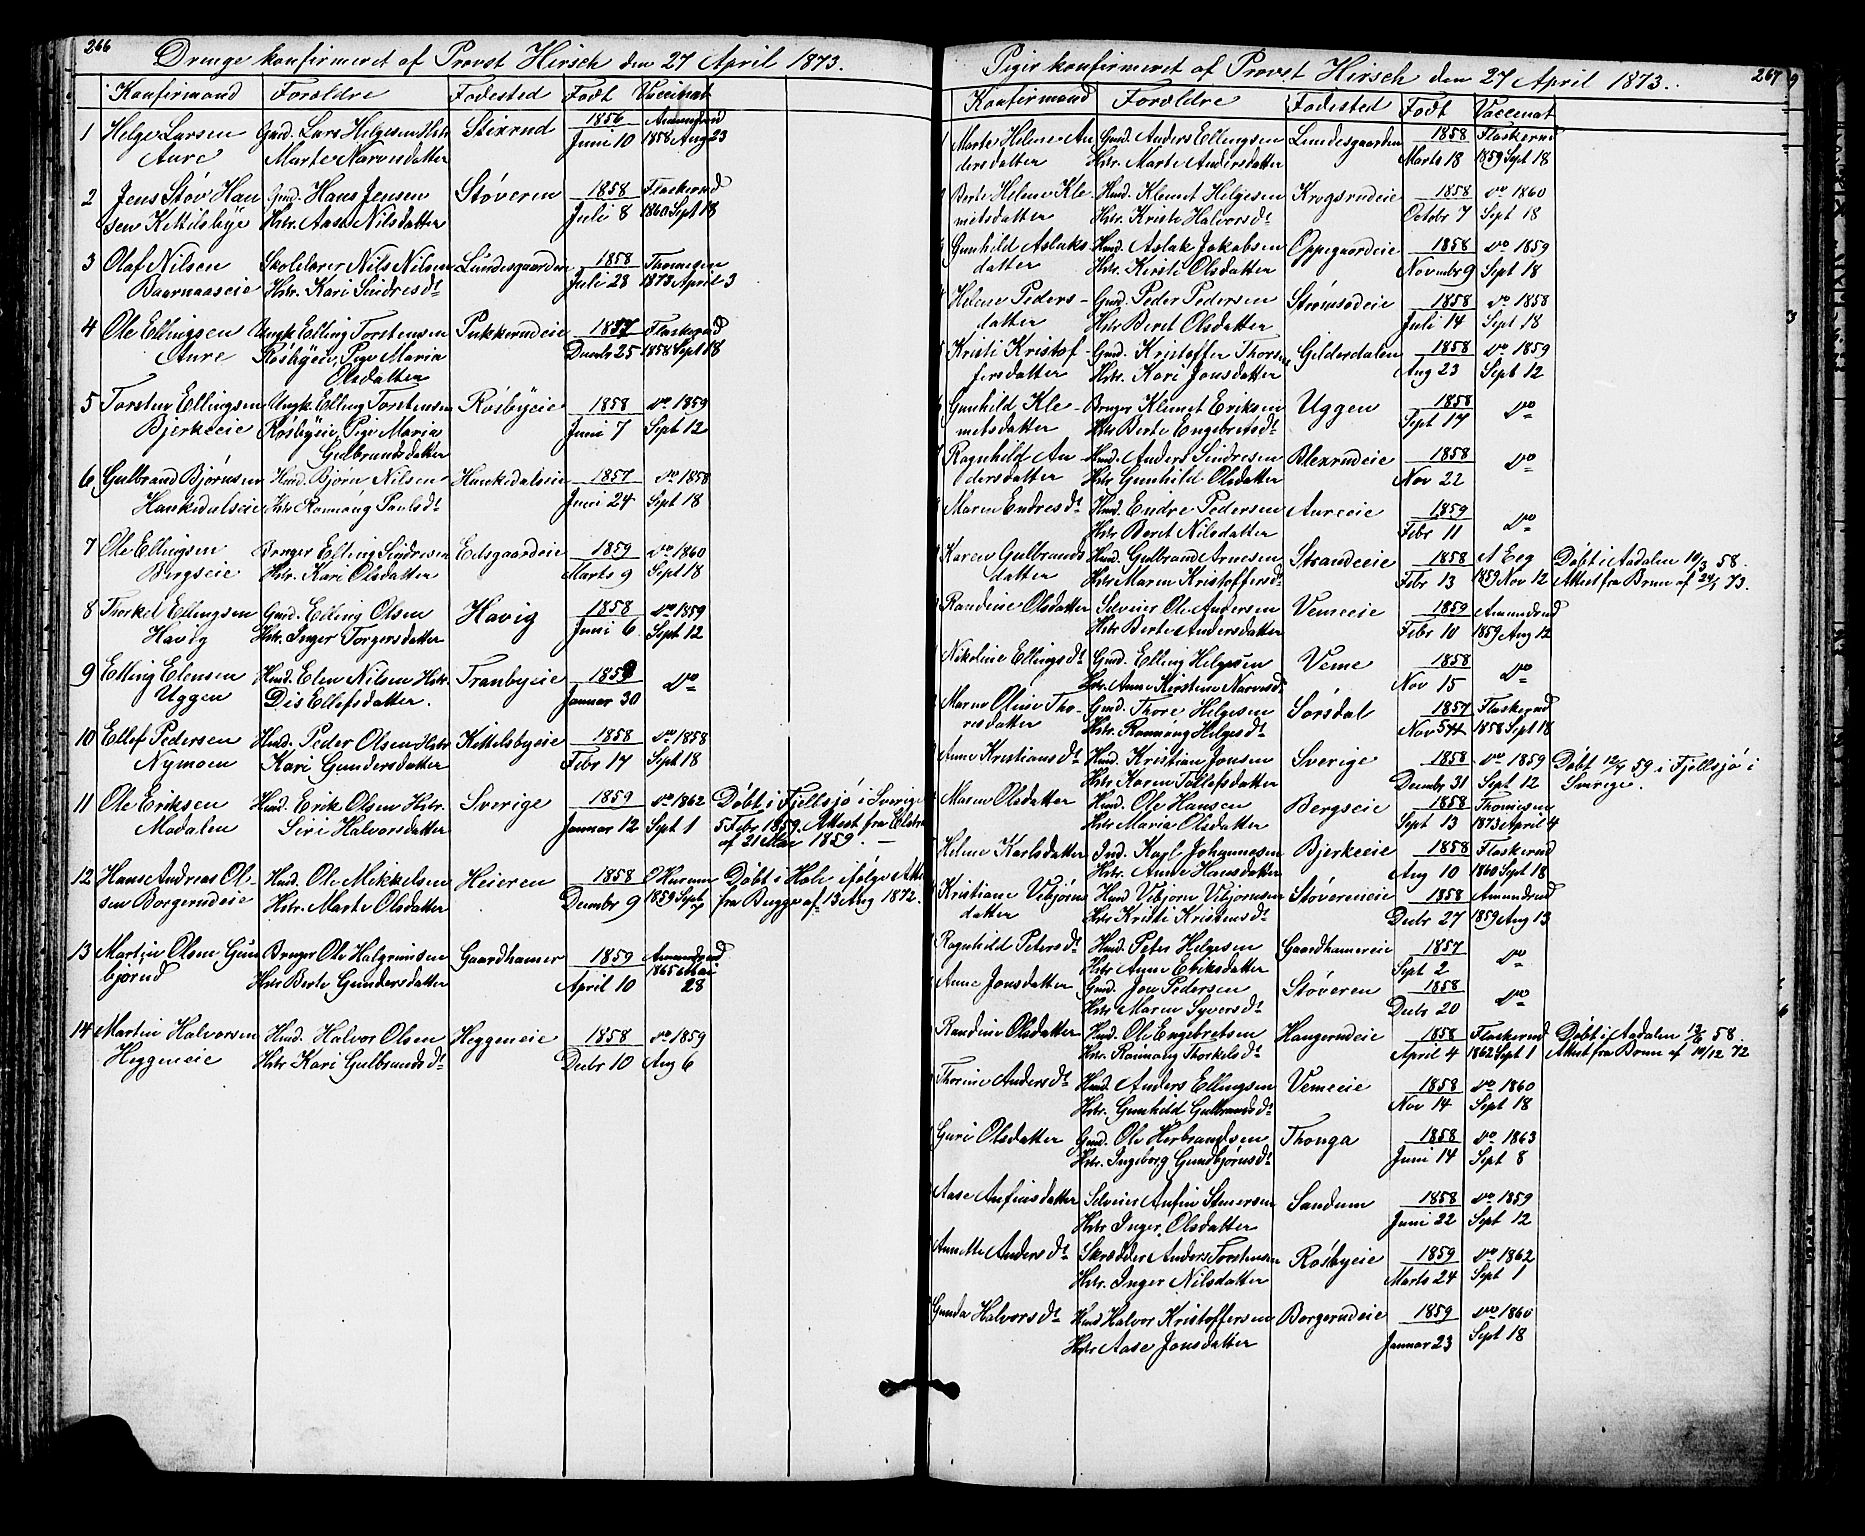 266
Drenge konfirmeret af Provst Hirsch den 27 April 1873.
Konfirmand Forældre Fødested Født Vaccinat
1 Helge Larsen Gmd. Lars Helgesen Hstr Stixrud 1856 Amundrud
Aure Marte Narvesdatter Juni 10 1858 Aug 23
2 Jens Støv Han Gmd. Hans Jensen Støveren 1858 Flaskerud
sen Kittilsbye Hstr. Aase Nilsdatter Juli 8 1860 Sept 18
3 Olaf Nilsen Skolelærer Nils Nilsen Lundesgaarden 1858 Thomesen
Baarnaaseie Hstr. Kari Sindresdt Juli 28 1873 April 3
4 Ole Ellingsen Ungk. Elling Torstensen Pukkerudeie 1857 Flaskerud
Aure Røsbyeie, Pige Maria Decbr 25 1858 Sept 18
Olsdatter
5 Torsten Ellingsen Ungk. Elling Torstensen Røsbyeie 1858 do 1859
Bjerkeeie Røsbyeie, Pige Maria Juni 7 Sept 12
Gulbrandsdatter
6 Gulbrand Bjørnsen Hmd. Bjørn Nilsen Hankedalseie 1857 do 1858
Hankedalseie Hstr Rannøug Paulsdt Juni 24 Sept 18
7 Ole Ellingsen Bruger Elling Sindresen Eelsgaardeie 1859 do 1860
Bergseie Hstr. Kari Olsdatter Marts 9 Sept 18
8 Thorkel Ellingsen Gmd. Elling Olsen Havig 1858 do 1859
Havig Hstr. Inger Torgersdatter Juni 6 Sept 12
9 Elling Elensen Hmd. Elen Nilsen Hstr. Tranbyeie 1859 do
Uggen Dis Ellefsdatter. Januar 30
10 Ellef Pedersen Hmd. Peder Olsen Hstr Kittelsbyeie 1858 do 1858
Nymoen Kari Gundersdatter Febr 17 Sept 18
11 Ole Eriksen Hmd. Erik Olsen Hstr. Sverige 1859 do 1862 Døbt i Fjellsjø i Sverige
Modalen Siri Halvorsdatter Januar 12 Sept 1 5 Febr 1859. Attest fra
af 21 Mai 1859. —
12 Hans Andreas Ol- Hmd. Ole Mikkelsen Heieren 1858 Døbt i Hole ifølge Att
sen Borgerudeie Hstr. Marte Olsdatter Decembr 9 1859 Sept fra Bugge af 13 Aug 1872.
13 Martin Olsen Gun Bruger Ole Halgrimsen Gaardhamer 1859 Amundrud
bjørud Hstr Berte Gundersdatter April 10 1865 Mai
28
14 Martin Halvorsen Hmd. Halvor Olsen Heggeneie 1858 do 1859
Heggeneie Hstr Kari Gulbrandsdt Decbr 10 Aug 6
267
Piger konfirmeret af Provst Hirsch den 27 April 1873.
Konfirmand Forældre Fødested Født Vaccenat
1 Marte Helene An Gmd. Anders Ellingsen Lundesgaarden 1858 Flaskerud
dersdatter Hstr. Marte Andersdatter Marts 18 1859 Sept 18
Berte Helene Kle Hmd. Klemet Helgesen Krogsrudeie 1858 do 1860
metsdatter Hstr. Kristi Halvorsdt Octobr 7 Sept 18
Gunhild Aslaks Hmd. Aslak Jakobsen Oppegaardeie 1858 do 1859
datter Hstr. Kirsti Olsdatter Novembr 9 Sept 18
Helene Peders- Gmd. Peder Pedersen Strømsodeie 1858 do 1858
datter Hstr Beret Olsdatter Juli 14 Sept 18
Kristi Kristof Gmd. Kristoffer Thorsen Gilderdalen 1858 do 1859
fersdatter Hstr. Kari Jonsdatter Aug 23 Sept 12
Gunhild Kle- Bruger Klemet Eriksen Uggen 1858 do
metsdatter Hstr Berte Engebretsdt Sept 17
Ragnhild An Hmd. Anders Sindresen Blexrudeie 1858 do
dersdatter Hstr Gunhild Olsdatter Nov 22
Maren Endresdt Hmd. Endre Pedersen Aureeie 1859 do
Hstr. Beret Nilsdatter Febr 11
Karen Gulbrands Hmd. Gulbrand Arnesen Strandeeie 1858 A Eeg Døbt i Aadalen 14/3 58.
datter Hstr Maren Kristoffersdt Febr 13 1859 Nov 12 Attest fra Brun af 24/1 73.
Randine Olsdatter Selveier Ole Andersen Vemeeie 1859 Amundrud
Hstr Berte Andersdatter Febr 10 1859 Aug 12
Nikoline Ellingsdt Gmd. Elling Helgesen Veme 1858 do
Hstr. Anne Kirstine Narvesdt Nov 15
Maren Oline Tho- Gmd. Thore Helgesen Sørsdal 1857 Flaskerud
resdatter Hstr. Rannøug Helgesdt Nov 1858 Sept 18
Anne Kristiansdt Hmd. Kristian Jonsen Sverige 1858 do 1859 Døbt 12/4 59 i Fjellsjø i
Hstr Karen Tollefsdatter Decembr 31 Sept 12 Sverige.
Maren Olsdatter Hmd. Ole Hansen Bergseie 1858 Thomesen
Hstr Maria Olsdatter Sept 13 1873 April 4
Helene Karlsdatter Ind. Karl Johannesen Bjerkeeie 1858 Flaskerud
Hstr. Anne Hansdatter Aug 10 1860 Sept 18
Kristiane Vebjørns Hmd Vebjørn Vebjørnsen Støvereneie 1858 Amundrud
datter Hstr Kristi Kristensdt Decbr 27 1859 Aug 13
Ragnhild Petersdt Hmd. Peter Helgesen Gaardhamereie 1857 do
Hstr Anne Eriksdatter Sept 2
Anne Jonsdatter Gmd. Jon Pedersen Støveren 1858 do
Hstr Maren Syversdt Decbr 20
Randine Olsdatter Hmd. Ole Engebretsen Haugerudeie 1858 Flaskerud Døbt i Aadalen 13/6 58.
Hstr. Rannøug Thorkelsdt April 4 1862 Sept 1 Attest fra Brun af 19/12 72
Thorine Andersdt Hmd Anders Ellingsen Vemeeie 1858 do 1860
Hstr. Gunhild Gulbrandsdt Nov 14 Sept 18
Guri Olsdatter Gmd. Ole Herbrandsen Thonga 1858 do 1863
Hstr. Ingeborg Gundbjørnsdt Juni 14 Sept 8
Aase Anfinsdatter Selveier Anfin Stenersen Sandum 1858 do 1859
Hstr Inger Olsdatter Juni 22 Sept 12
Annette Andersdt Skrædder Anders Torstensen Røsbyeie 1859 do 1862
Hstr. Inger Nilsdatter Marts 24 Sept 1
Gunda Halvorsdt Hmd Halvor Kristoffersen Borgerudeie 1859 do 1860
Hstr Aase Jonsdatter Januar 23 Sept 18